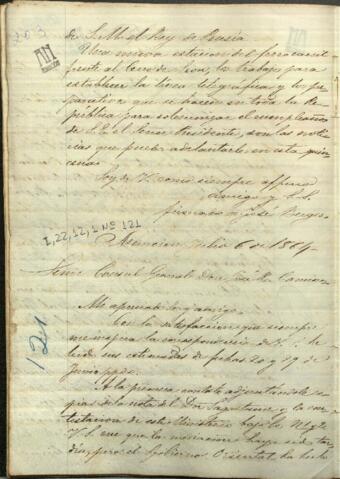 203
de S. M. el Rey de Prusia
Una nueva estacion del ferrocarril
frente al Cerro de Leon, los trabajos para
establecer la linea telegrafica y los pre
parativos que se hacen en toda la Re
pública para solemnizar el cumpleaños
de S. E. el Señor Presidente, son las noti
cias que puedo adelantarle en esta quin
cena.
Soy de V. como siempre affmo
amigo y S. S.
firmado José Berges
I, 22, 12, 1 Nº 121
Asuncion Julio 6 de 1864
Señor Consul General Don José R. Caminos
121
Mi apreciado amigo
Con la satisfaccion que siempre
me inspira la correspondencia de V., he
leido sus estimadas de fechas 20 y 29 de
Junio ppdo.
A la primera contesto adjuntándole co
pias de la nota del Dr. y la con
testacion de este Ministerio bajo los Nº 1 y 2
V. S. vé que la mediacion haya sido tar
dia, pero el Gobierno Oriental ha hecho